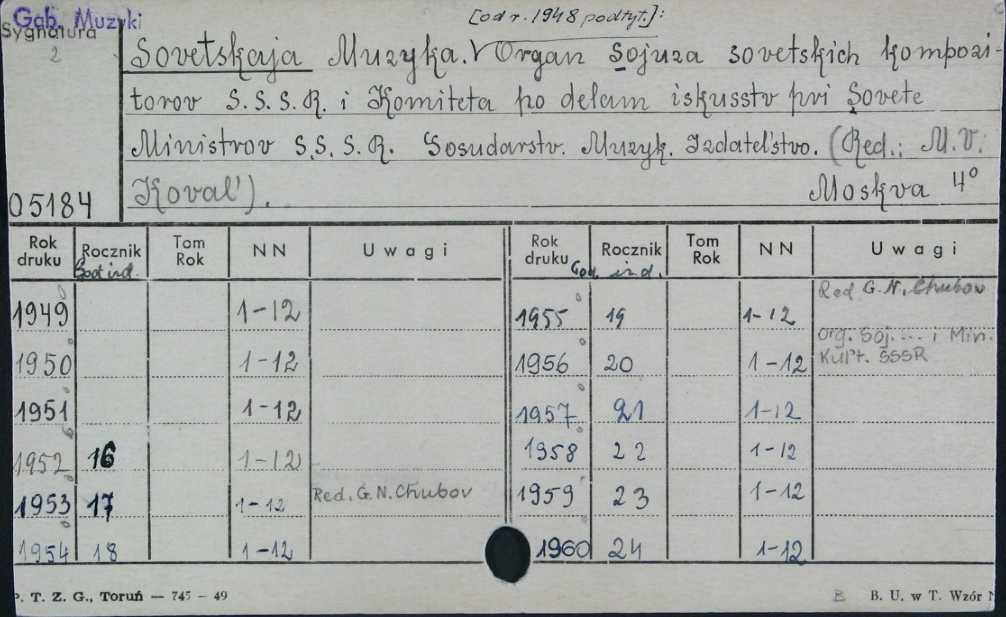 Gab. Muzyki
Sygnatura
2
[od r. 1948 podtyt.]:
Sovetskaja Muzyka. Organ Sojuza sovetskich kompozi-
torov S.S.S.R. i Komiteta po delam iskusstv pri Sovete
Ministrov S.S.S.R. Gosudarstv. Muzyk. Izdatel'stvo. (Red.: M.V.
Koval'). Moskva 4°
05184
Rok druku Rocznik Tom Rok NN Uwagi Rok druku Rocznik Tom Rok NN Uwagi
God izd. God izd.
Red G.N. Chubov
1949 1-12 1955 19 1-12
Org. Soj. ... i Min.
Kul't. SSSR
1950 1-12 1956 20 1-12
1951 1-12 1957 21 1-12
1952 16 1-12 1958 22 1-12
1953 17 1-12 Red. G.N. Chubov 1959 23 1-12
1954 18 1-12 1960 24 1-12
P. T. Z. G., Toruń — 745 - 49 B B. U. w T. Wzór